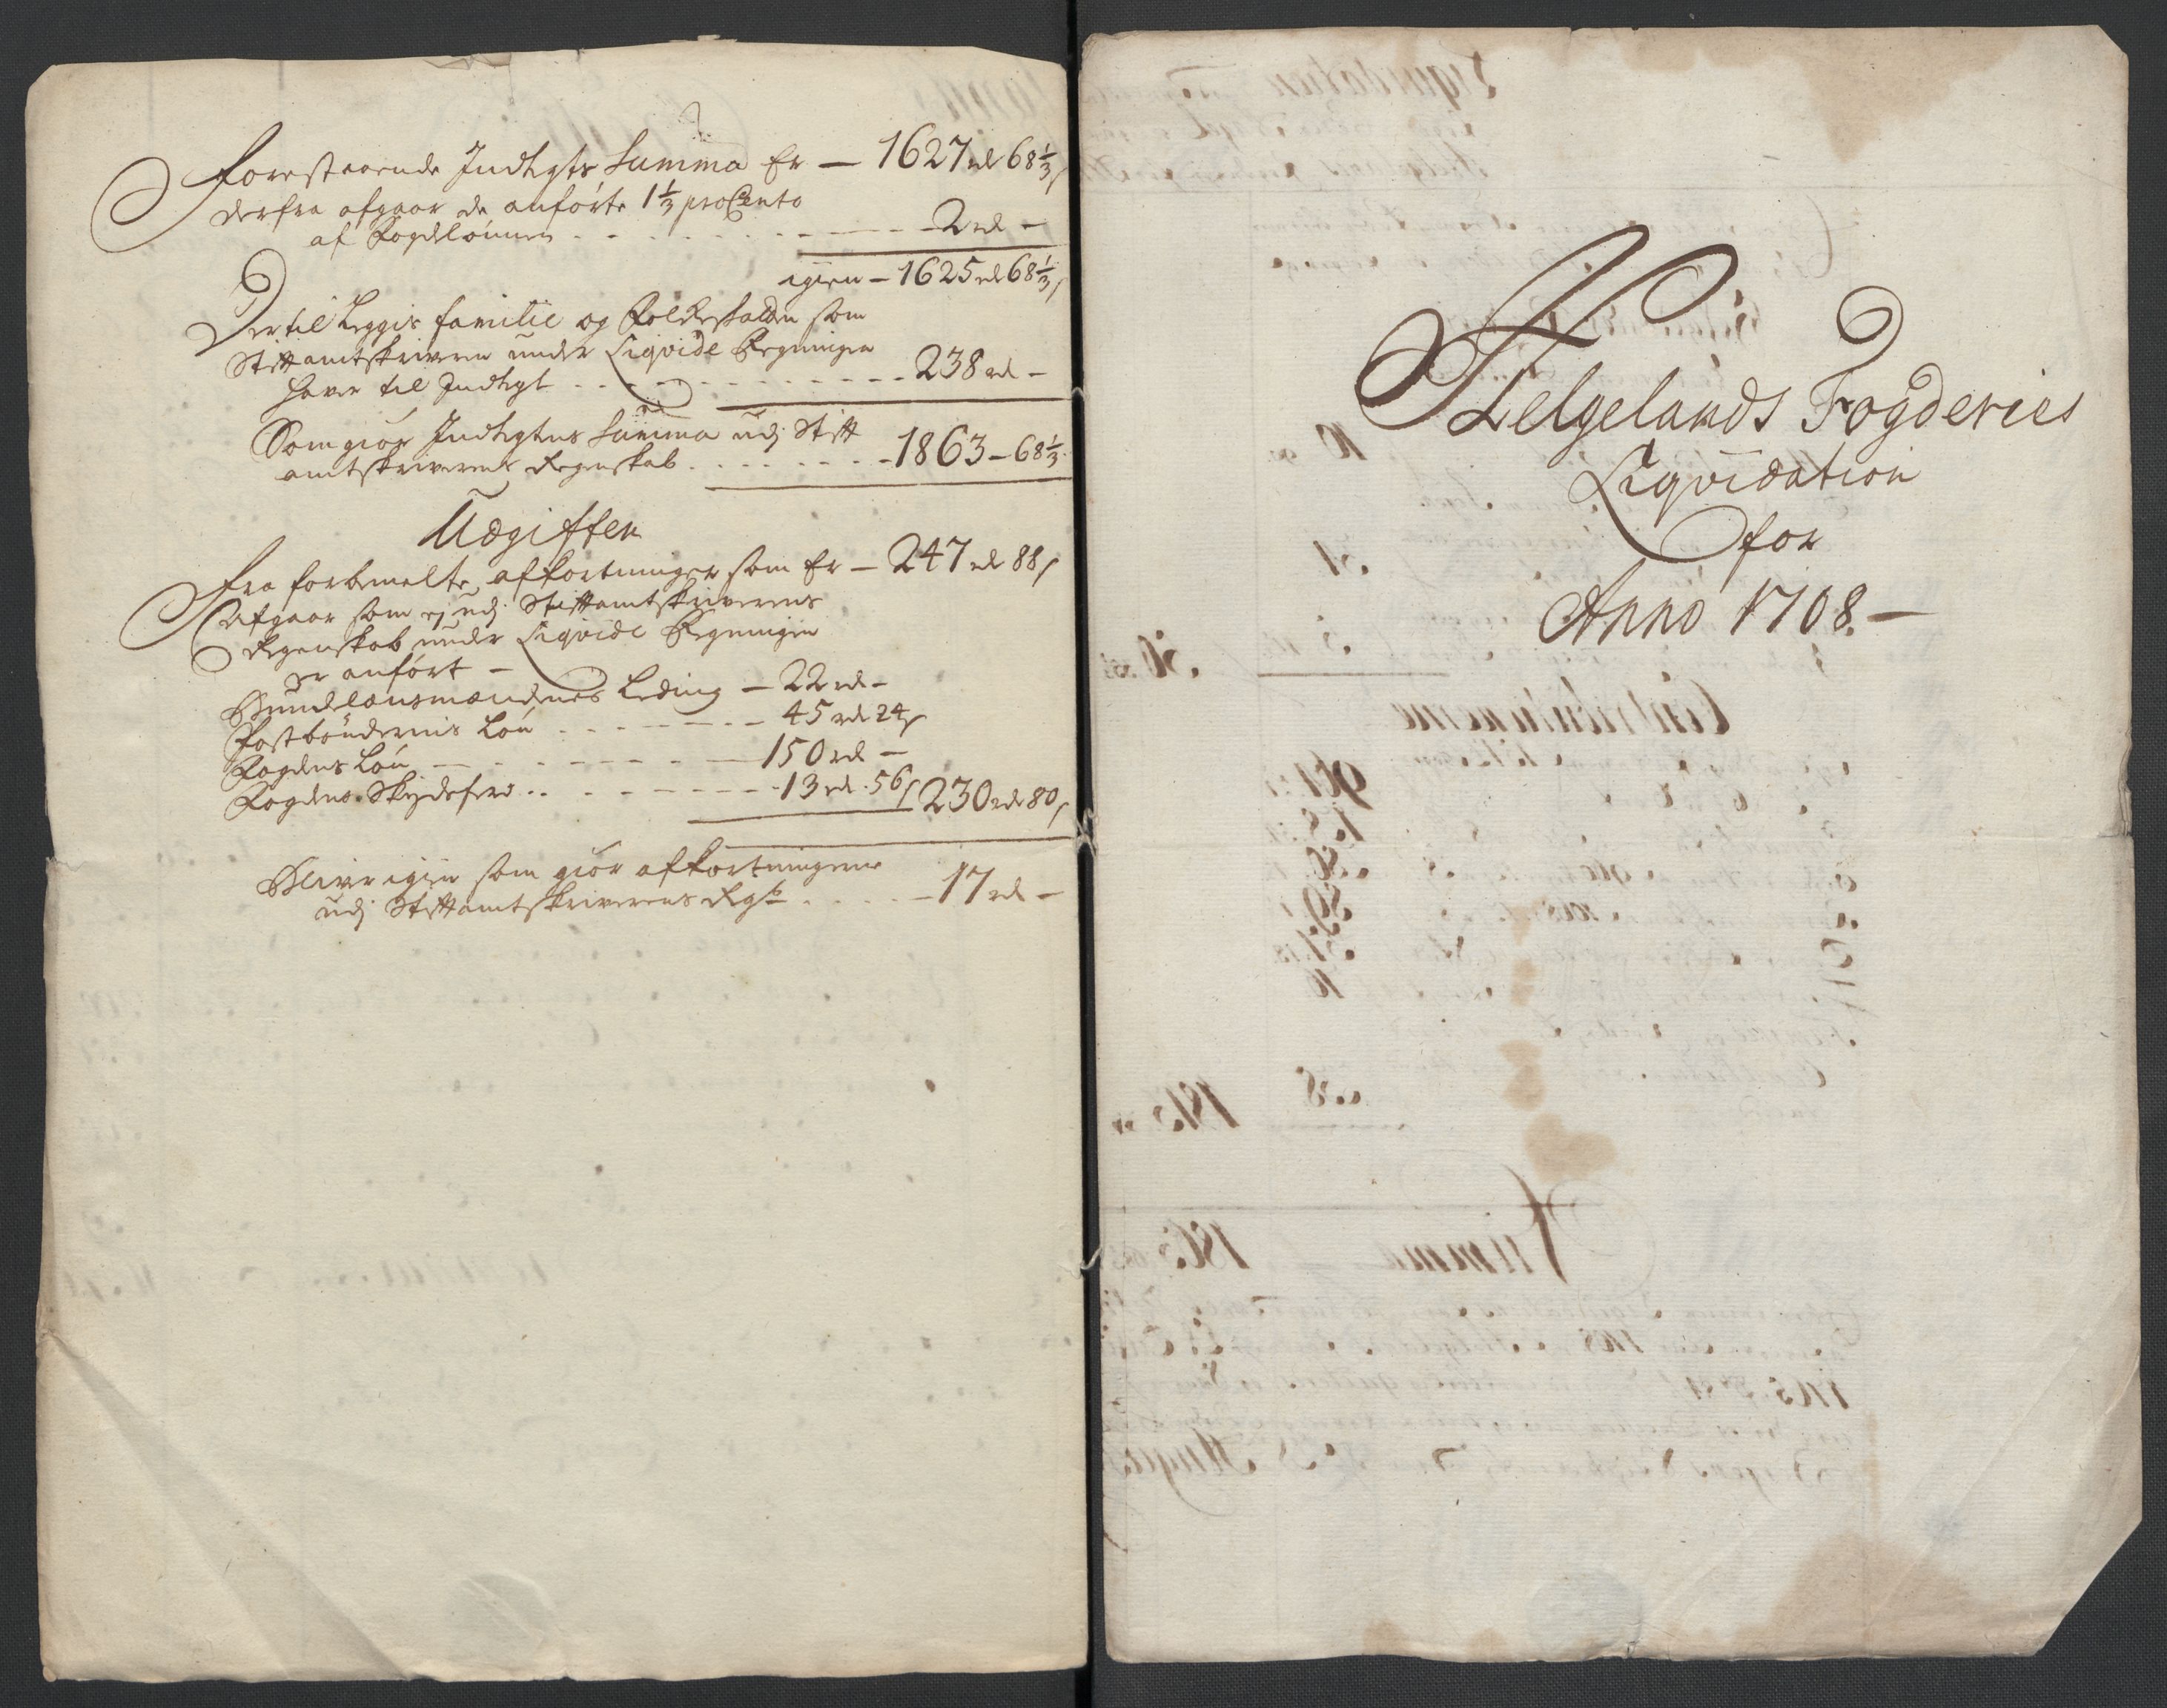 Forestaaende Indtegts Summa Er — 1627 rd 68⅓ s
Derfra afgaar de anførte 1⅓ pro Cento
af Fogdelønnen - - - - - - - 2 rd —
igien — 1625 rd 68⅓ s
Dertil Leggis familie og Folkeskatten som
Stiftamtskriveren under Liqvide Regningen
hafver til Indtegt - - - - - - - 238 rd —
Som giør Indtegtens Summa udj Stift
amtskriverens Regenskab - - - - - 1863 — 68⅓
Udgifften
Fra forbemelte afkortninger som Er — 247 rd 88 s
Afgaar som ej udj Stiftamtskriverens
Regenskab under Liqvide Regningen
er anført —
Bundelensmændenes Leding — 22 rd —
Postbøndernis Løn - - - - - 45 rd 24 s
Fogdens Løn - - - - - 150 rd —
Fogdens Skydsferd - - - - - 13 rd 56 s 230 rd 80 s
Blifver igien som giør afkortningerne
udj Stiftamtskriverens Rgsb - - - - - 17 rd —
Helgelands Fogderies
Liqvidation
for
Anno 1708. —